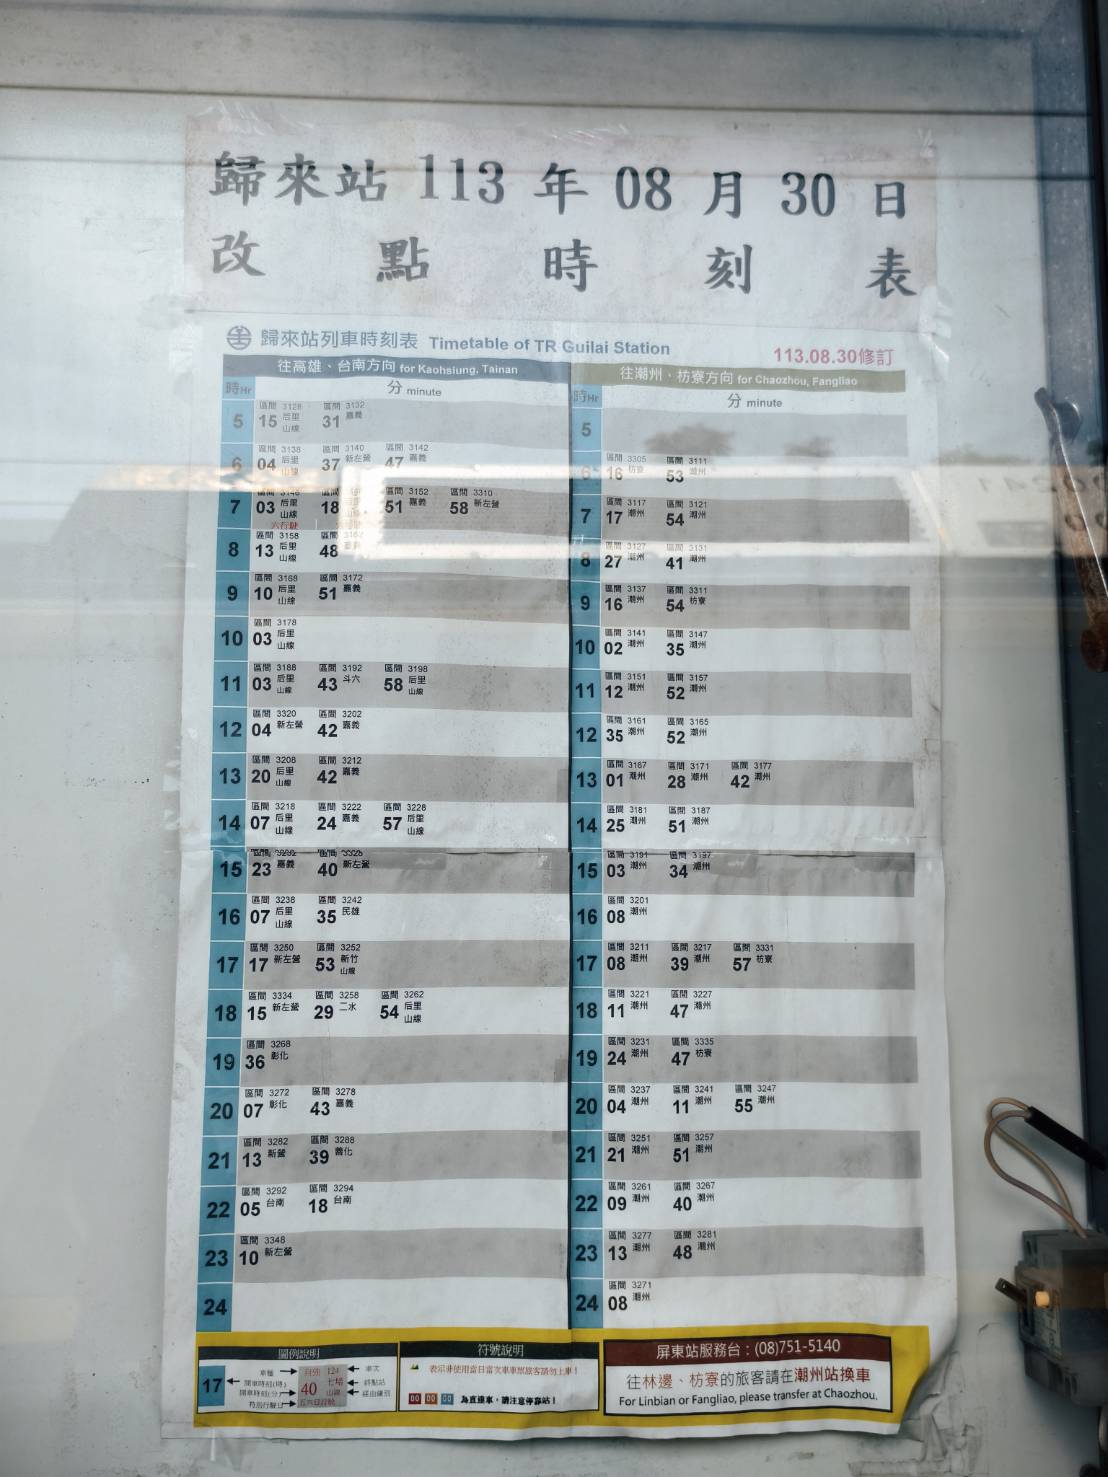 歸來站 113 年 08 月 30 日
改點時刻表
歸來站列車時刻表 Timetable of TR Guilai Station
113.08.30修訂
往高雄、台南方向 for Kaohsiung, Tainan
時Hr 分 minute
5 區間 3128 15 后里 山線 區間 3132 31 嘉義
6 區間 3138 04 后里 山線 區間 3140 37 新左營 區間 3142 47 嘉義
7 區間 03 后里 山線 18 區間 3152 51 嘉義 區間 3310 58 新左營
8 區間 3158 13 后里 山線 區間 48
9 區間 3168 10 后里 山線 區間 3172 51 嘉義
10 區間 3178 03 后里 山線
11 區間 3188 03 后里 山線 區間 3192 43 斗六 區間 3198 58 后里 山線
12 區間 3320 04 新左營 區間 3202 42 嘉義
13 區間 3208 20 后里 山線 區間 3212 42 嘉義
14 區間 3218 07 后里 山線 區間 3222 24 嘉義 區間 3228 57 后里 山線
15 區間 23 嘉義 區間 40 新左營
16 區間 3238 07 后里 山線 區間 3242 35 民雄
17 區間 3250 17 新左營 區間 3252 53 新竹 山線
18 區間 3334 15 新左營 區間 3258 29 二水 區間 3262 54 后里 山線
19 區間 3268 36 彰化
20 區間 3272 07 彰化 區間 3278 43 嘉義
21 區間 3282 13 新營 區間 3288 39 善化
22 區間 3292 05 台南 區間 3294 18 台南
23 區間 3348 10 新左營
24
往潮州、枋寮方向 for Chaozhou, Fangliao
時Hr 分 minute
5
6 區間 3305 16 枋寮 區間 3111 53 潮州
7 區間 3117 17 潮州 區間 3121 54 潮州
8 區間 3127 27 潮州 區間 3131 41 潮州
9 區間 3137 16 潮州 區間 3311 54 枋寮
10 區間 3141 02 潮州 區間 3147 35 潮州
11 區間 3151 12 潮州 區間 3157 52 潮州
12 區間 3161 35 潮州 區間 3165 52 潮州
13 區間 3167 01 潮州 區間 3171 28 潮州 區間 3177 42 潮州
14 區間 3181 25 潮州 區間 3187 51 潮州
15 區間 3191 03 潮州 區間 3197 34 潮州
16 區間 3201 08 潮州
17 區間 3211 08 潮州 區間 3217 39 潮州 區間 3331 57 枋寮
18 區間 3221 11 潮州 區間 3227 47 潮州
19 區間 3231 24 潮州 區間 3335 47 枋寮
20 區間 3237 04 潮州 區間 3241 11 潮州 區間 3247 55 潮州
21 區間 3251 21 潮州 區間 3257 51 潮州
22 區間 3261 09 潮州 區間 3267 40 潮州
23 區間 3277 13 潮州 區間 3281 48 潮州
24 區間 3271 08 潮州
圖例說明
車種 自強 124 車次
17 開車時刻(時) 終點站
開車時刻(分) 40 山線 經由線別
特殊行駛日
符號說明
表示非使用當日當次車車票旅客請勿上車！
00 00 00 為直達車，請注意停靠站！
屏東站服務台：(08)751-5140
往林邊、枋寮的旅客請在潮州站換車
For Linbian or Fangliao, please transfer at Chaozhou.